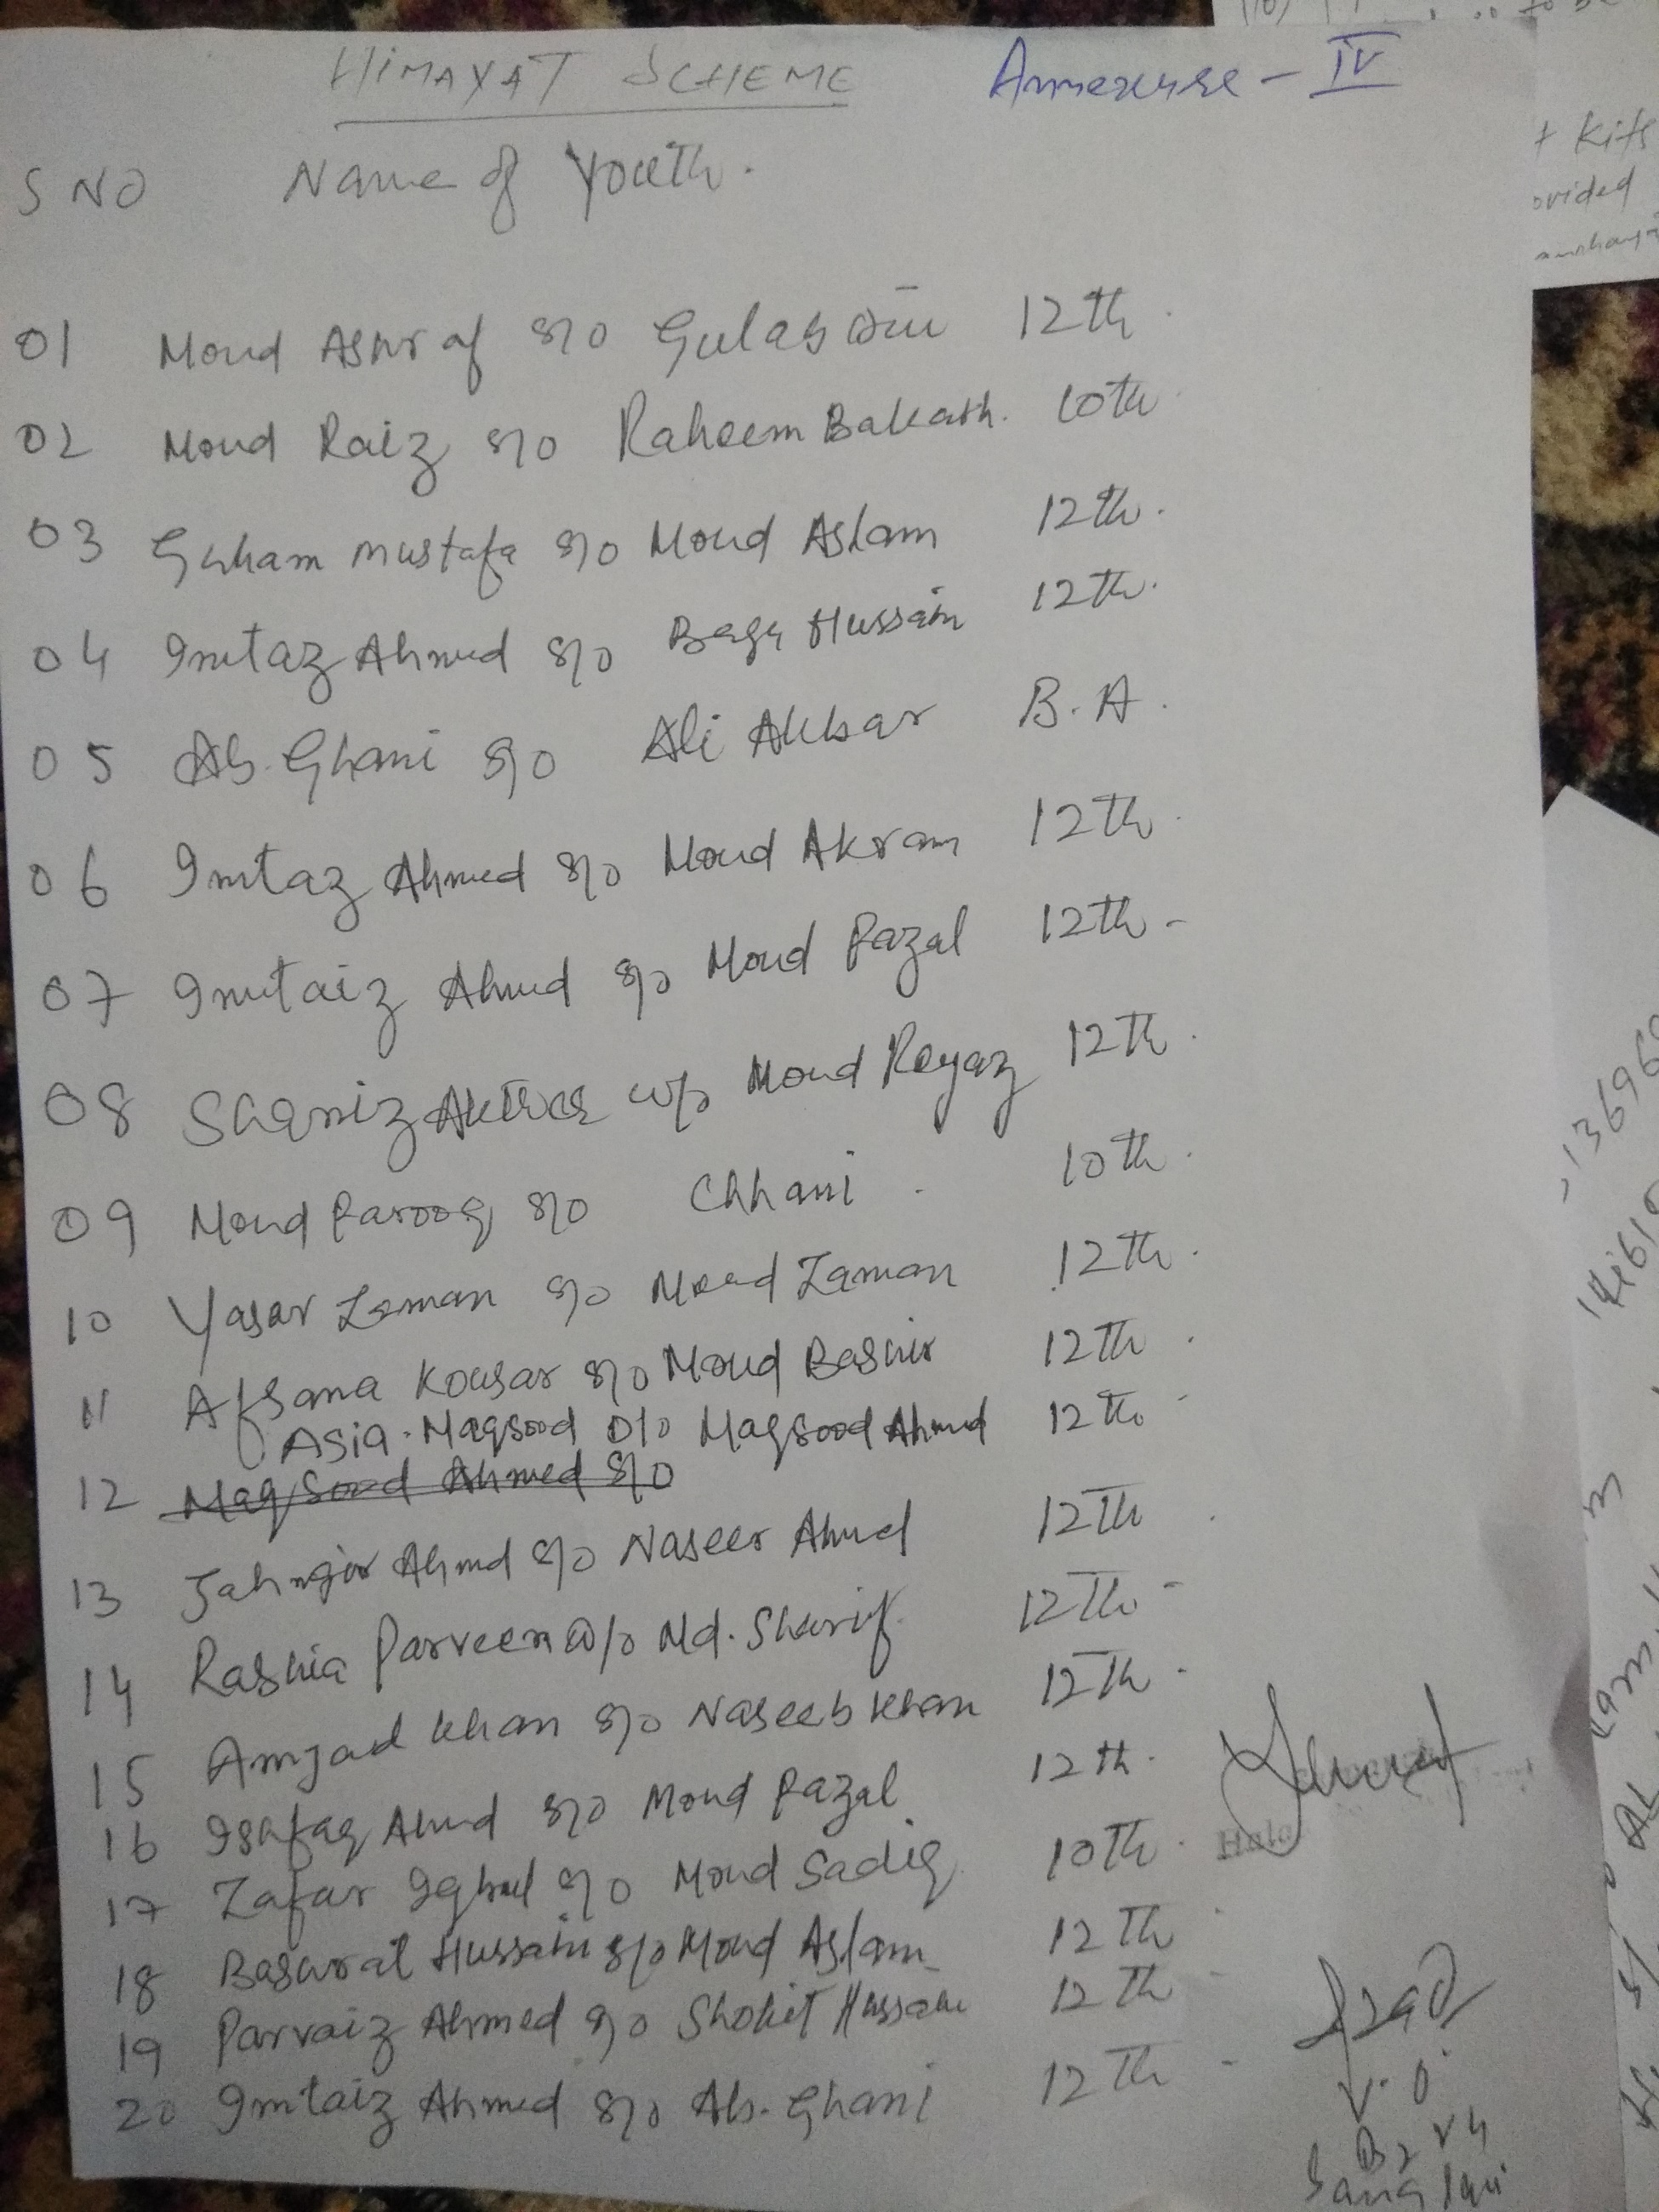 HIMAYAT SCHEME Annexure - IV
S NO Name of Youth.
01 Mohd Ashraf S/o Gulab Din 12th.
02 Mohd Raiz S/o Raheem Bakash. 10th
03 Gulam Mustafa S/o Mohd Aslam 12th.
04 Imtaz Ahmed S/o Baga Hussain 12th.
05 Ab. Ghani S/o Ali Akbar B.A.
06 Imtaz Ahmed S/o Mohd Akram 12th.
07 Imtaiz Ahmed S/o Mohd Fazal 12th -
08 Shaniz Akter W/o Mohd Reyaz 12th.
09 Mohd Farooq S/o Chhani. 10th.
10 Yasar Zaman S/o Mohd Zaman 12th.
11 Afsana Kousar S/o Mohd Bashir 12th.
Asia. Maqsood D/o Maqsood Ahmed 12th
12 Maqsood Ahmed S/o
13 Jahngir Ahmd S/o Naseer Ahmed 12th.
14 Rashia Parveen W/o Md. Sharif. 12th. -
15 Amjad Khan S/o Naseeb Khan 12th.
16 Isafaq Ahmed S/o Mohd Fazal 12th.
17 Zafar Iqbal S/o Mohd Sadiq 10th.
18 Basarat Hussain S/o Mohd Aslam 12th
19 Parvaiz Ahmed S/o Shokit Hussain 12th
20 Imtaiz Ahmed S/o Ab. Ghani 12th -
V.O.
t Kits
ovided